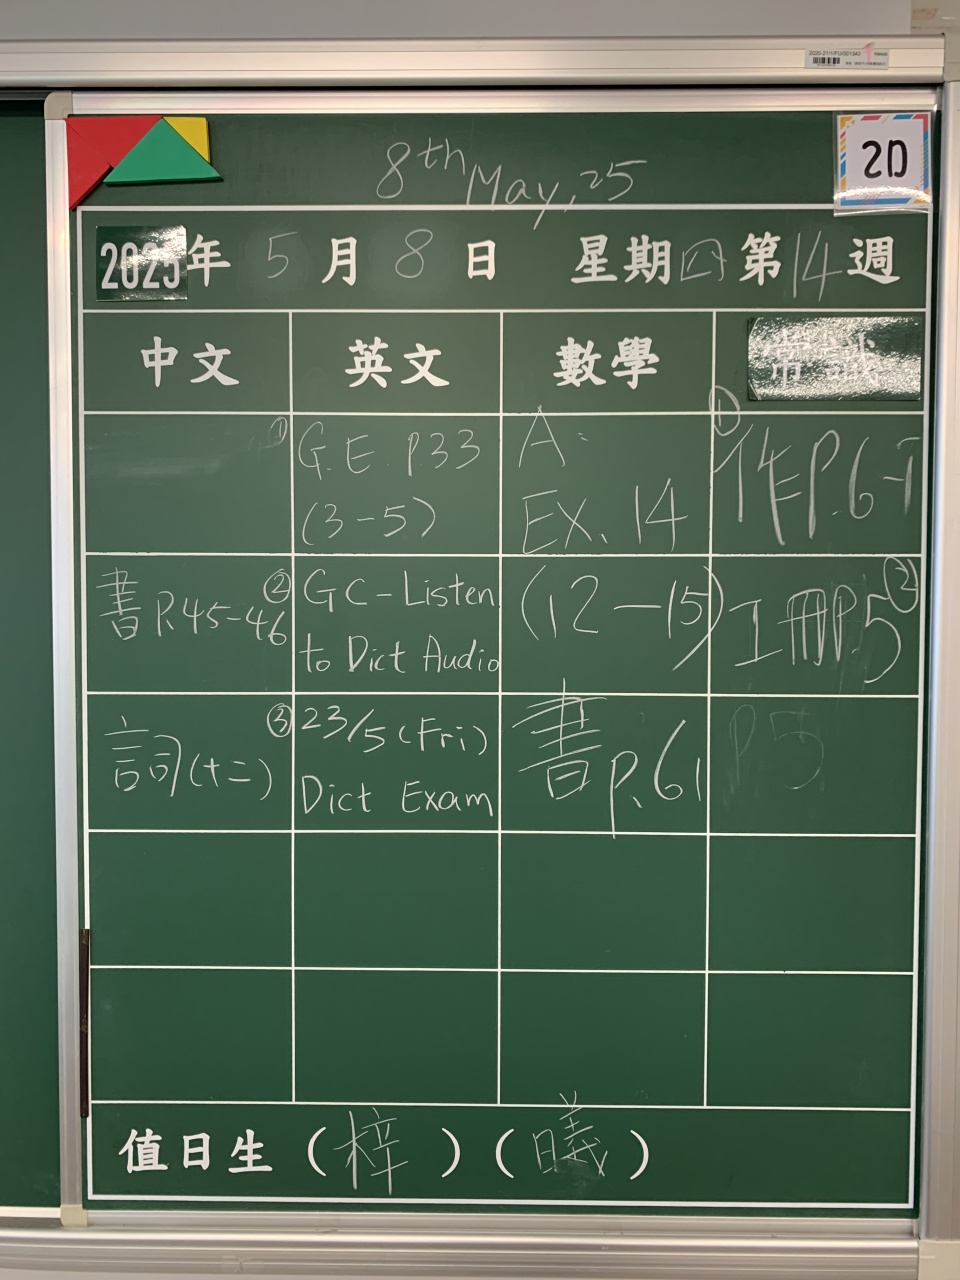 8th May, 25
2D
2025年 5 月 8 日 星期四 第 14 週
中文
英文
數學
常識
① G.E. P.33
(3-5)
A:
EX. 14
① 作P.6-7
書 P.45-46
② GC-Listen
to Dict Audio
(12-15)
工冊P.5 ②
詞(十二)
③ 23/5 (Fri)
Dict Exam
書 P.61
P5
值日生 (梓) (曦)